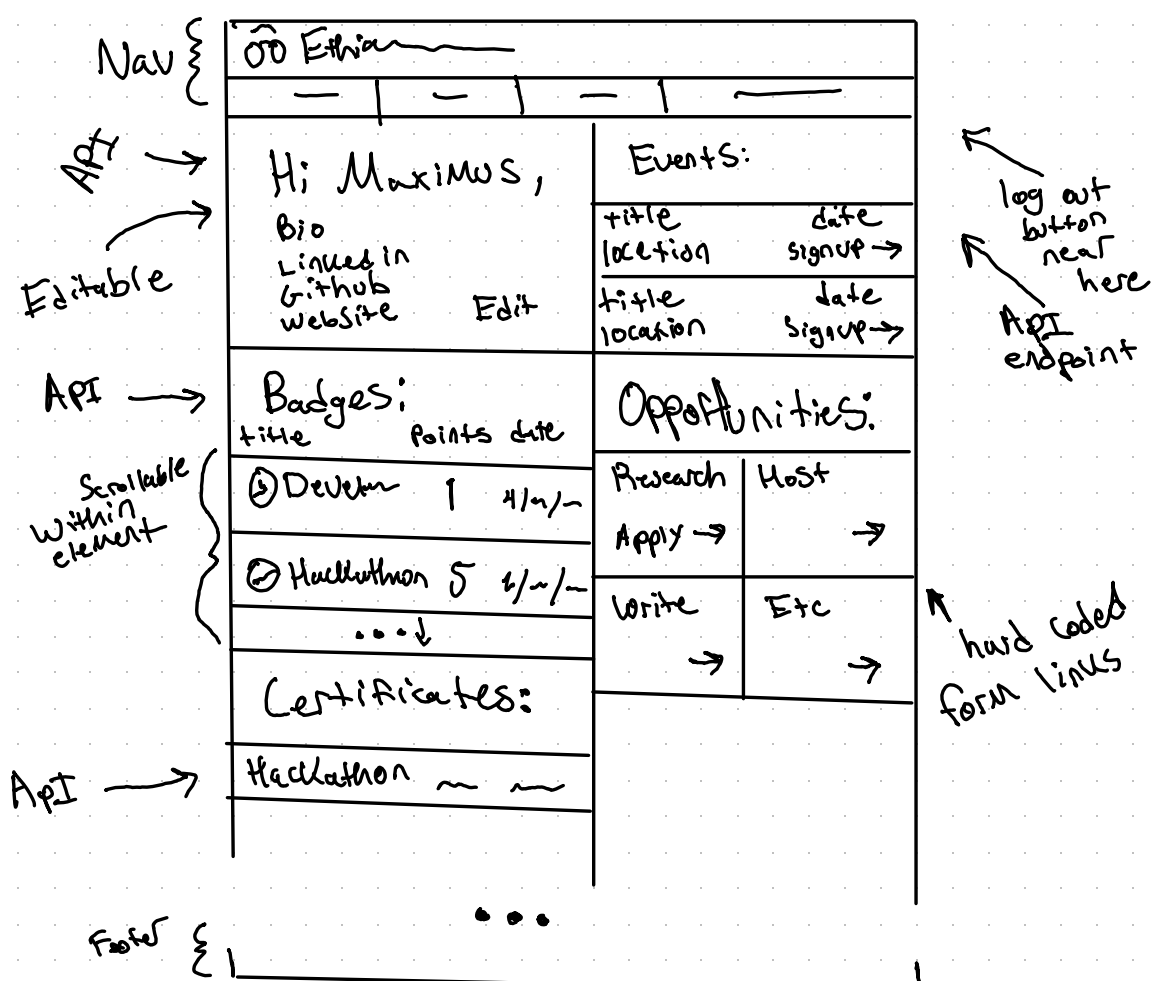 Nav
API
Editable
API
Scrollable
Within
element
API
Footer
Hi Maximus,
Bio
Linked in
Github
Website
Edit
Badges:
title points date
1
Hackathon 5
Certificates:
Hackathon
Events:
title date
location signup →
title date
location signup →
Opportunities:
Research
Apply →
Host
→
Write
→
Etc
→
log out
button
near
here
API
endpoint
hard coded
form links